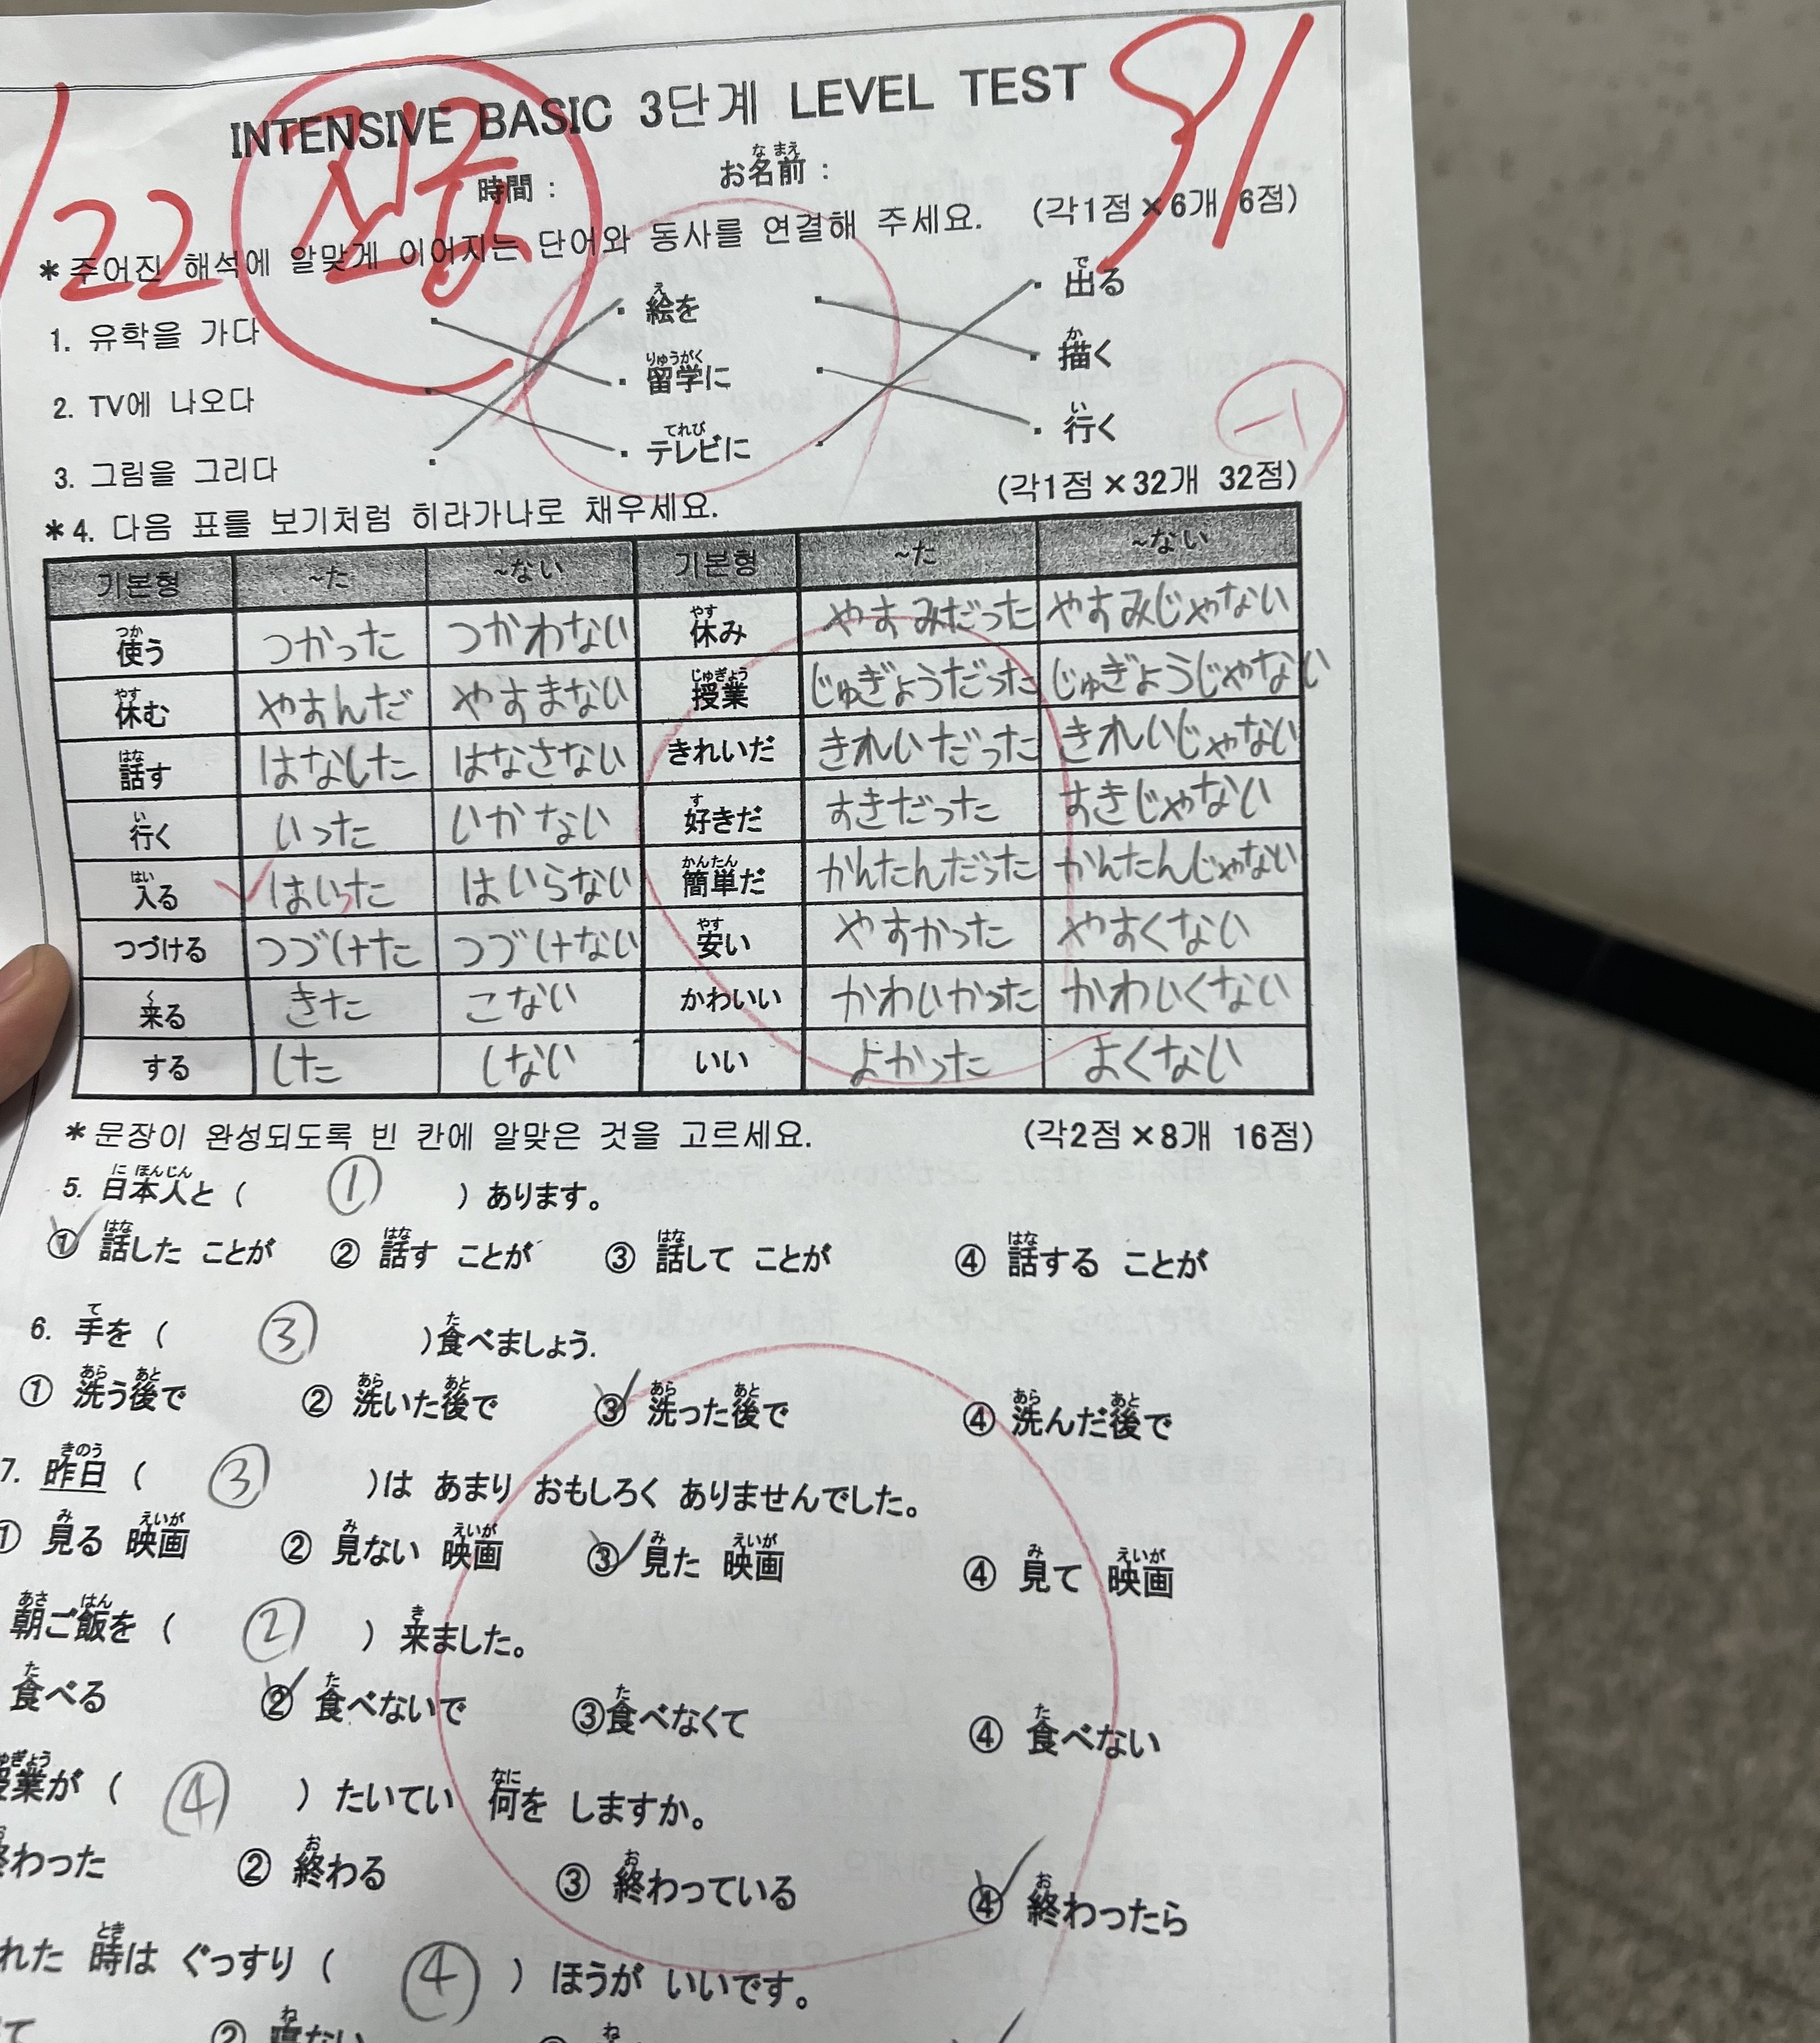 INTENSIVE BASIC 3단계 LEVEL TEST
91
22 진공
時間 : お名前 :
なまえ
*주어진 해석에 알맞게 이어지는 단어와 동사를 연결해 주세요. (각1점×6개 6점)
1. 유학을 가다 ・絵を ・出る
え で
2. TV에 나오다 ・留学に ・描く
りゅうがく か
3. 그림을 그리다 ・テレビに ・行く
てれび い
-1
*4. 다음 표를 보기처럼 히라가나로 채우세요. (각1점×32개 32점)
기본형 ~た ~ない 기본형 ~た ~ない
つか やす
使う つかった つかわない 休み やすみだった やすみじゃない
やす じゅぎょう
休む やすんだ やすまない 授業 じゅぎょうだった じゅぎょうじゃない
はな
話す はなした はなさない きれいだ きれいだった きれいじゃない
い す
行く いった いかない 好きだ すきだった すきじゃない
はい かんたん
入る はいった はいらない 簡単だ かんたんだった かんたんじゃない
やす
つづける つづけた つづけない 安い やすかった やすくない
く
来る きた こない かわいい かわいかった かわいくない
する した しない いい よかった よくない
*문장이 완성되도록 빈 칸에 알맞은 것을 고르세요. (각2점×8개 16점)
に ほんじん
5. 日本人と ( ① ) あります。
はな はな はな はな
① 話した ことが ② 話す ことが ③ 話して ことが ④ 話する ことが
て た
6. 手を ( ③ )食べましょう.
あら あと あら あと あら あと あら あと
① 洗う後で ② 洗いた後で ③ 洗った後で ④ 洗んだ後で
きのう
7. 昨日 ( ③ )は あまり おもしろく ありませんでした。
み えいが み えいが み えいが み えいが
① 見る 映画 ② 見ない 映画 ③ 見た 映画 ④ 見て 映画
あさ はん き
朝ご飯を ( ② ) 来ました。
た た た た
食べる ② 食べないで ③食べなくて ④ 食べない
なに
業が ( ④ ) たいてい 何を しますか。
お お お
わった ② 終わる ③ 終わっている ④ 終わったら
とき
れた 時は ぐっすり ( ④ ) ほうが いいです。
ね ね
て ② 寝ない